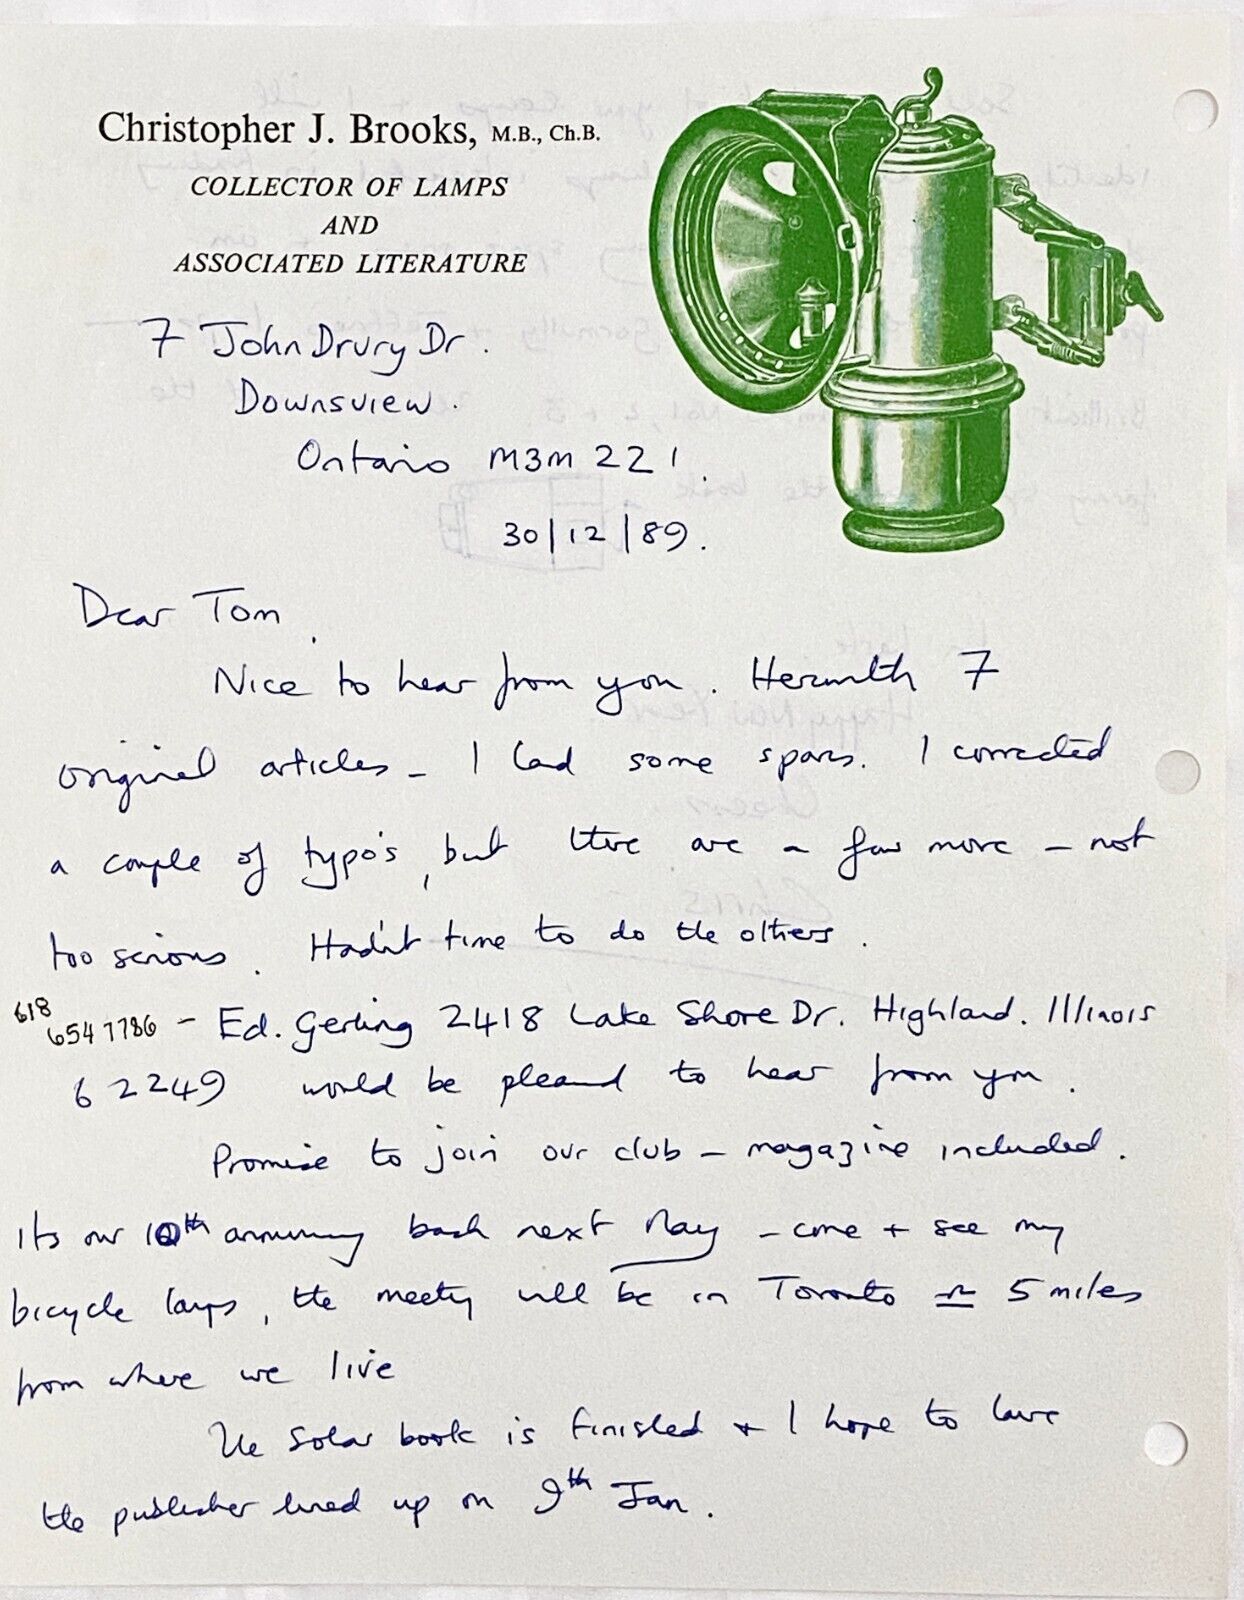 Christopher J. Brooks, M.B., Ch.B.
COLLECTOR OF LAMPS
AND
ASSOCIATED LITERATURE
7 John Drury Dr.
Downsview.
Ontario M3M 2Z1.
30/12/89.
Dear Tom,
Nice to hear from you. Herewith 7
original articles - I had some spares. I corrected
a couple of typo's, but there are a few more - not
too serious. Hadn't time to do the others.
618
654 7786 - Ed. Gerling 2418 Lake Shore Dr. Highland. Illinois
62249 would be pleased to hear from you.
Promise to join our club - magazine included.
Its our 10th anniversary bash next May - come + see my
bicycle lamps, the meeting will be in Toronto ≃ 5 miles
from where we live
The Solar book is finished + I hope to have
the publisher lined up on 9th Jan.